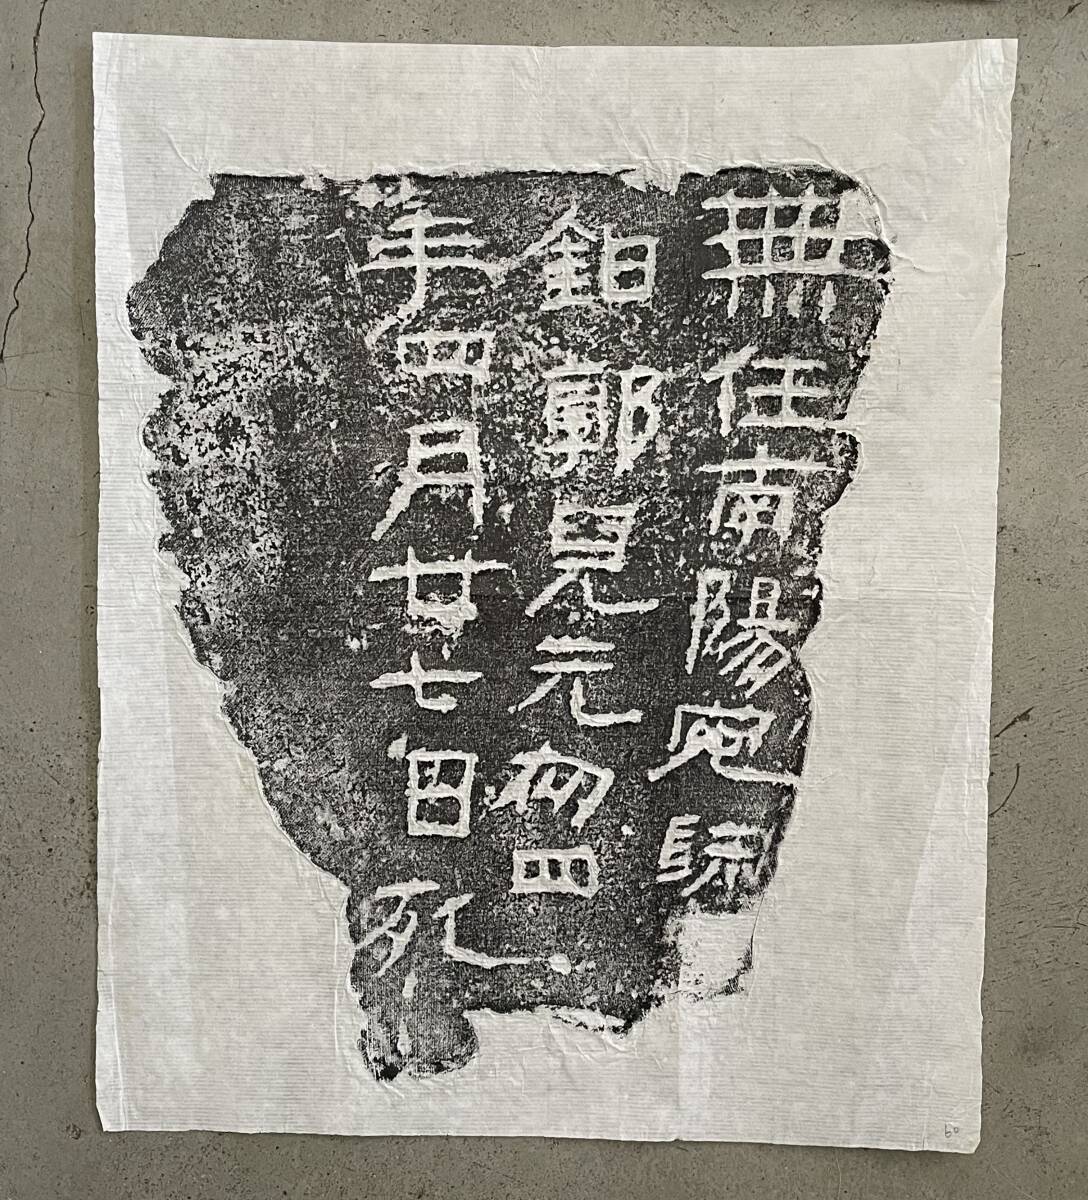 無任南陽宛髡
鉗郭見元初四
年四月廿七日死
60